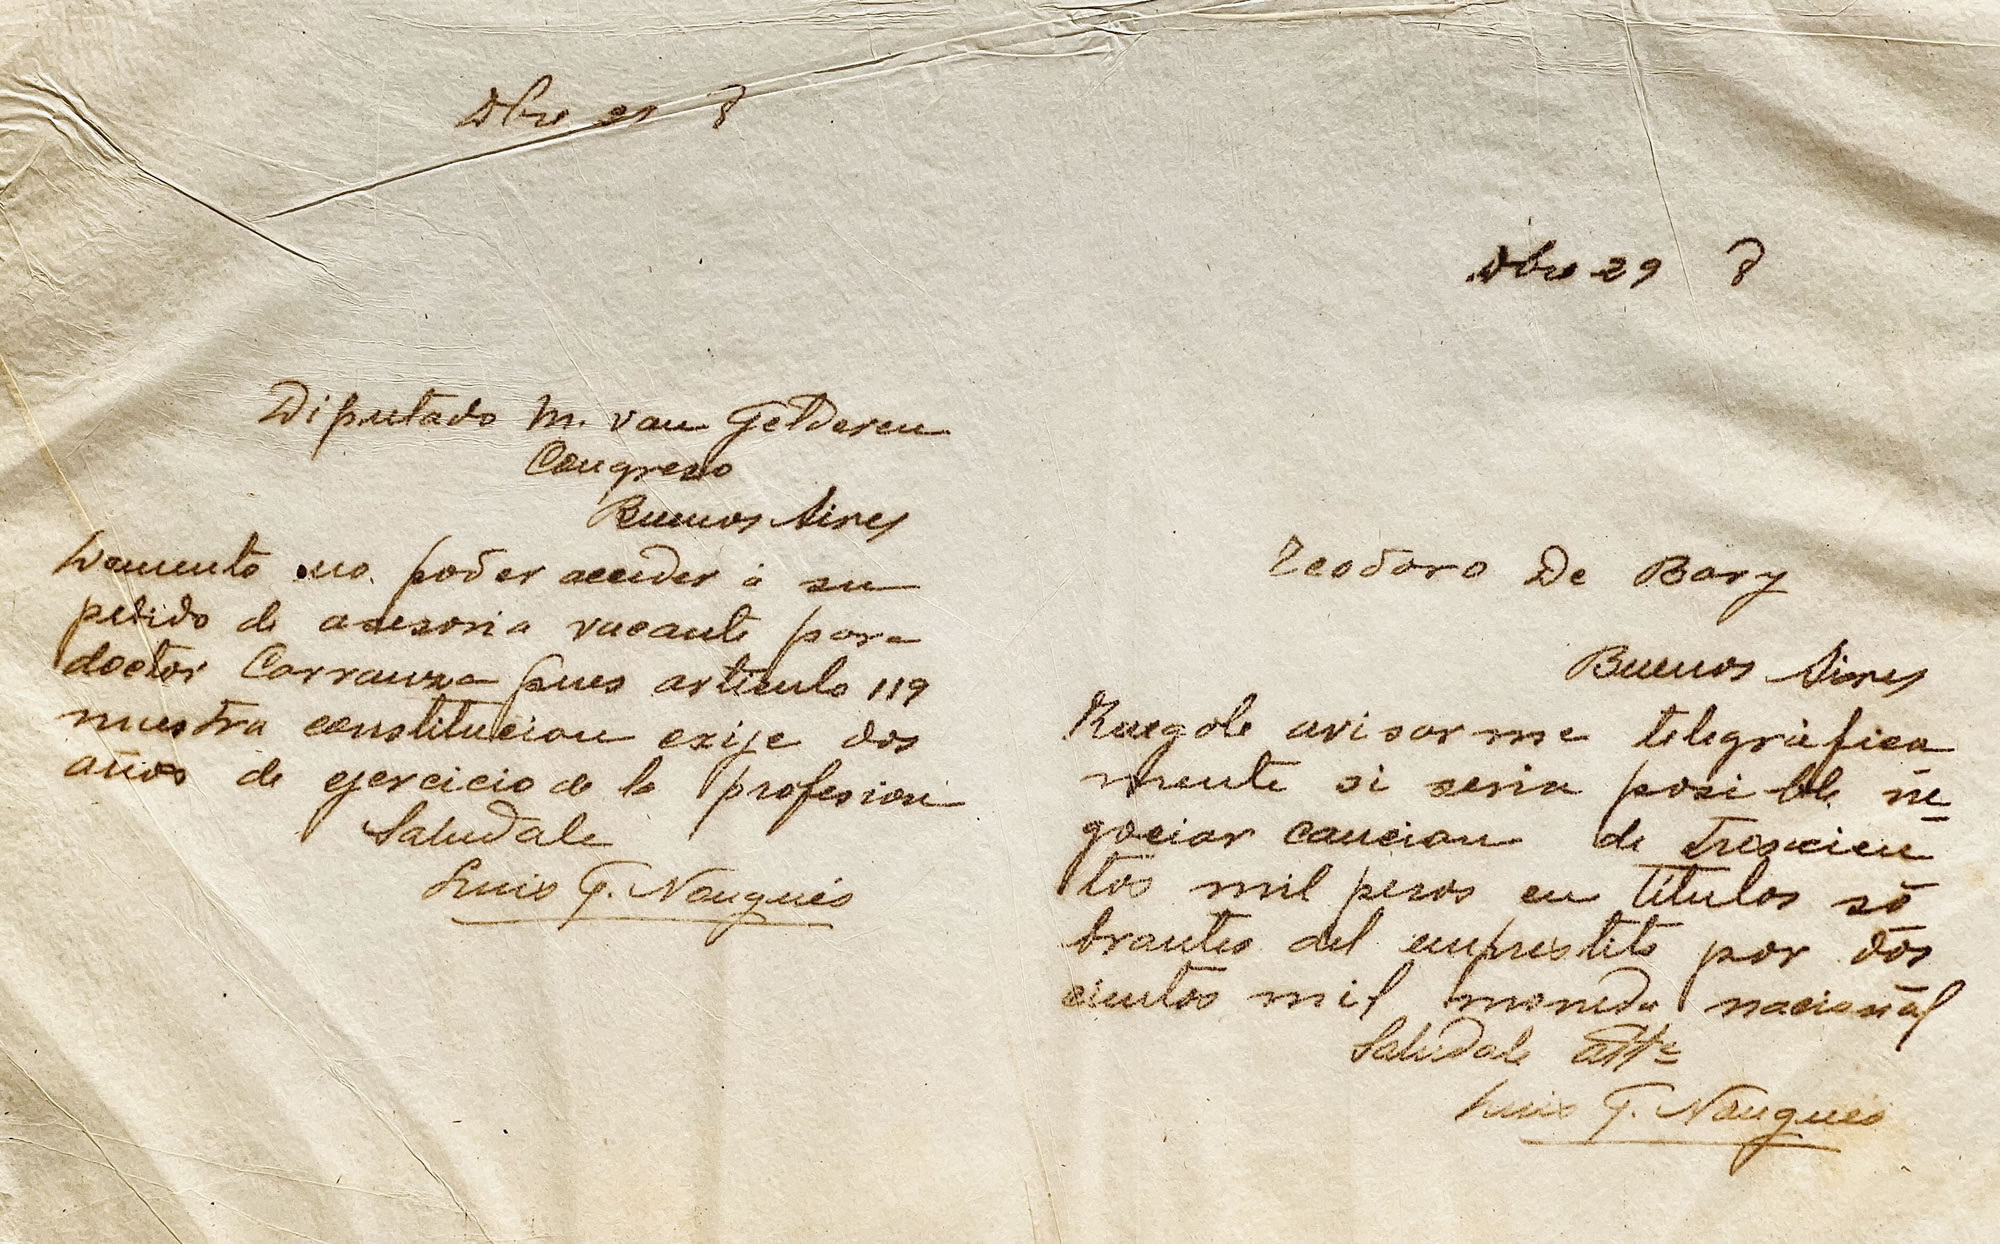 Dbre 21 8
Diputado M. van Gelderen
Congreso
Buenos Aires
Lamento no poder acceder á su
pedido de asesoria vacante para
doctor Carranza pues artículo 119
nuestra constitucion exije dos
años de ejercicio de la profesion
Saludale
Luis F. Nougués
Dbre 29 8
Teodoro De Bary
Buenos Aires
Ruegole avisarme telegráfica
mente si seria posible ne
gociar caucion de trescien
tos mil pesos en títulos so
brantes del emprestito por dos
cientos mil moneda nacional
Saludale atte
Luis F. Nougués